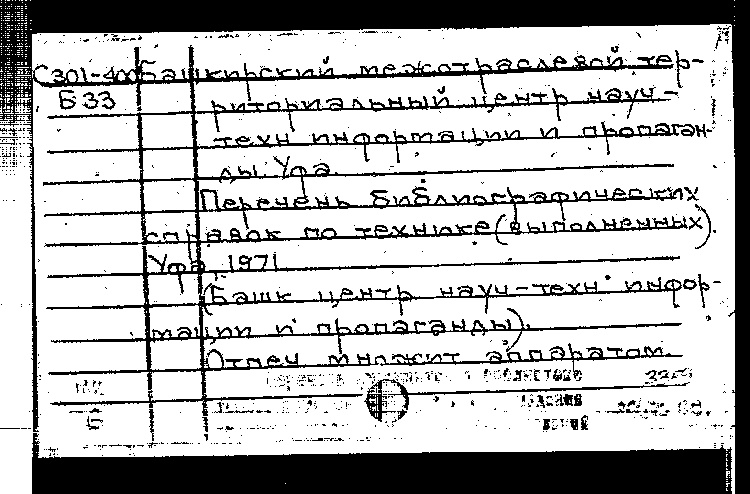 С301-400 Башкирский межотраслевой тер-
Б33 риториальный центр науч-
техн информации и пропаган-
ды. Уфа.
Перечень библиографических
справок по технике (выполненных).
Уфа, 1971
(Башк центр науч-техн информ-
мации и пропаганды).
Отпеч множит аппаратом.
Б